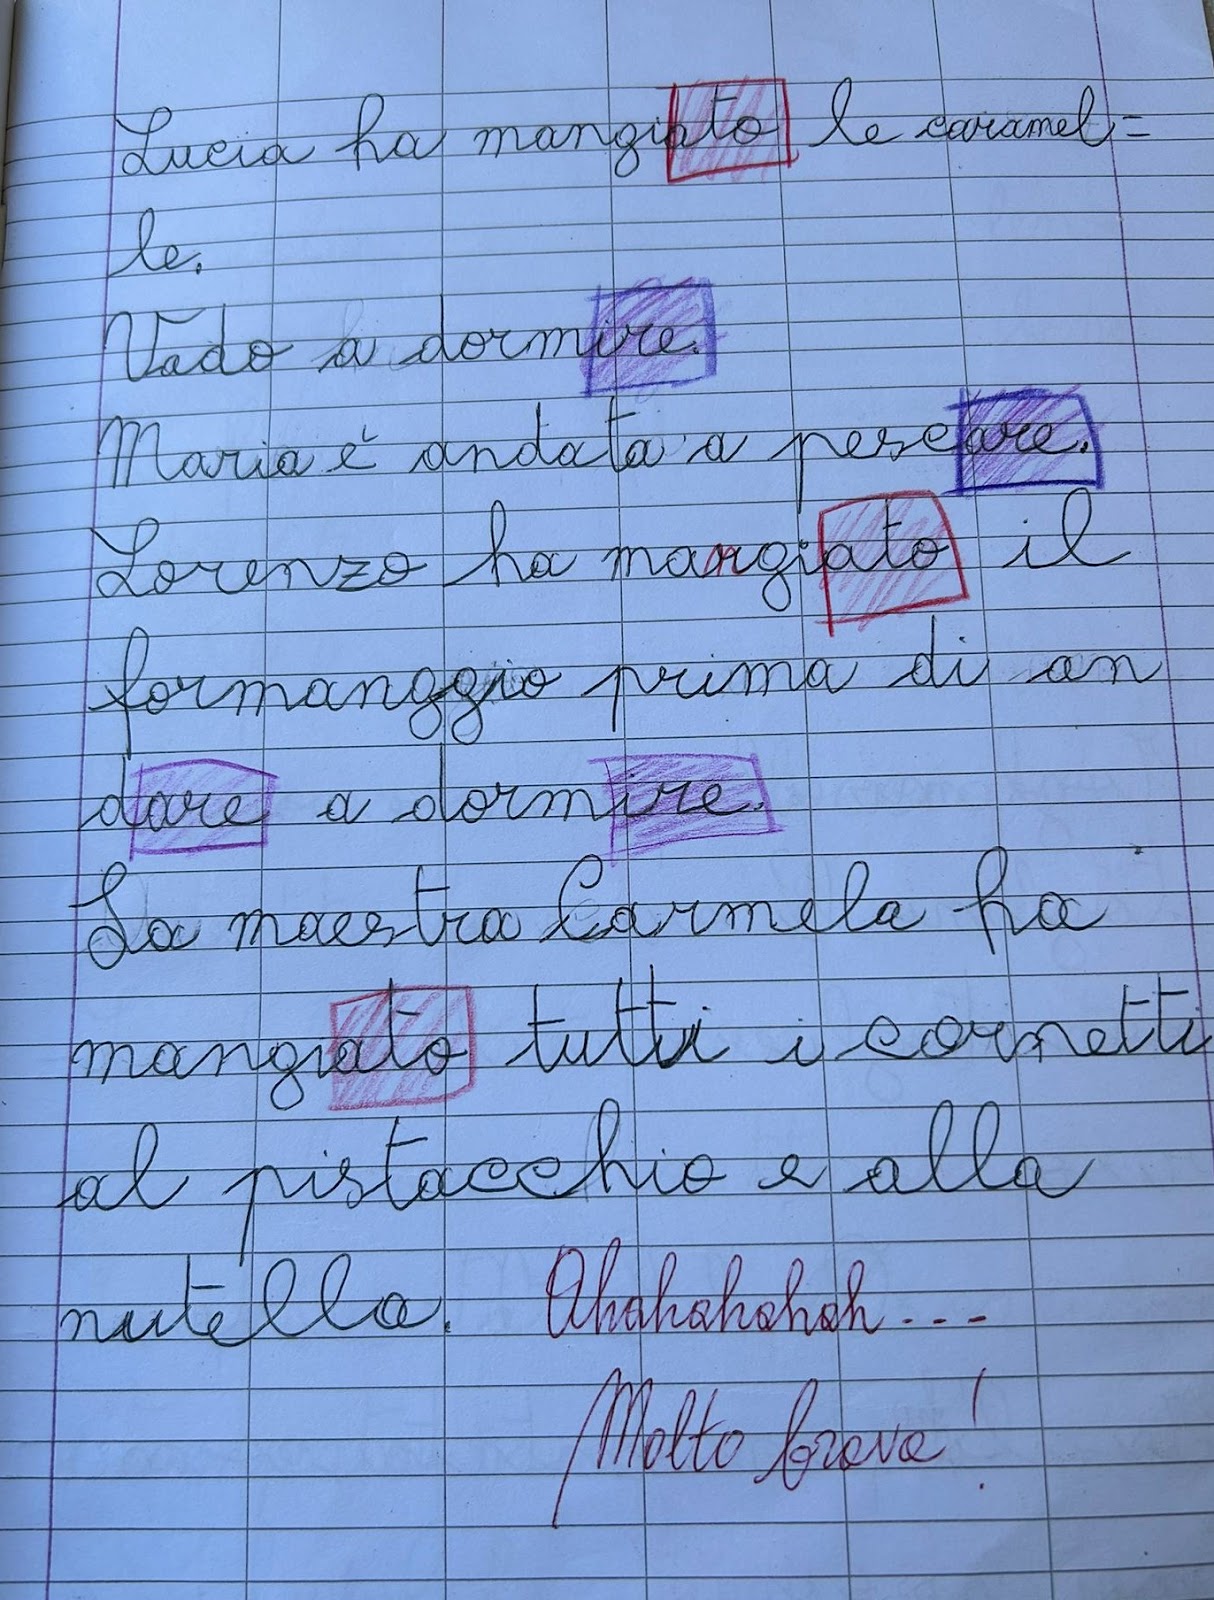 Lucia ha mangiato le caramel=
le.
Vado a dormire.
Maria è andata a pescare.
Lorenzo ha mangiato il
formanggio prima di an
dare a dormire.
La maestra Carmela ha
mangiato tutti i cornetti
al pistacchio e alla
nutella. Ahahahahah...
Molto brava!